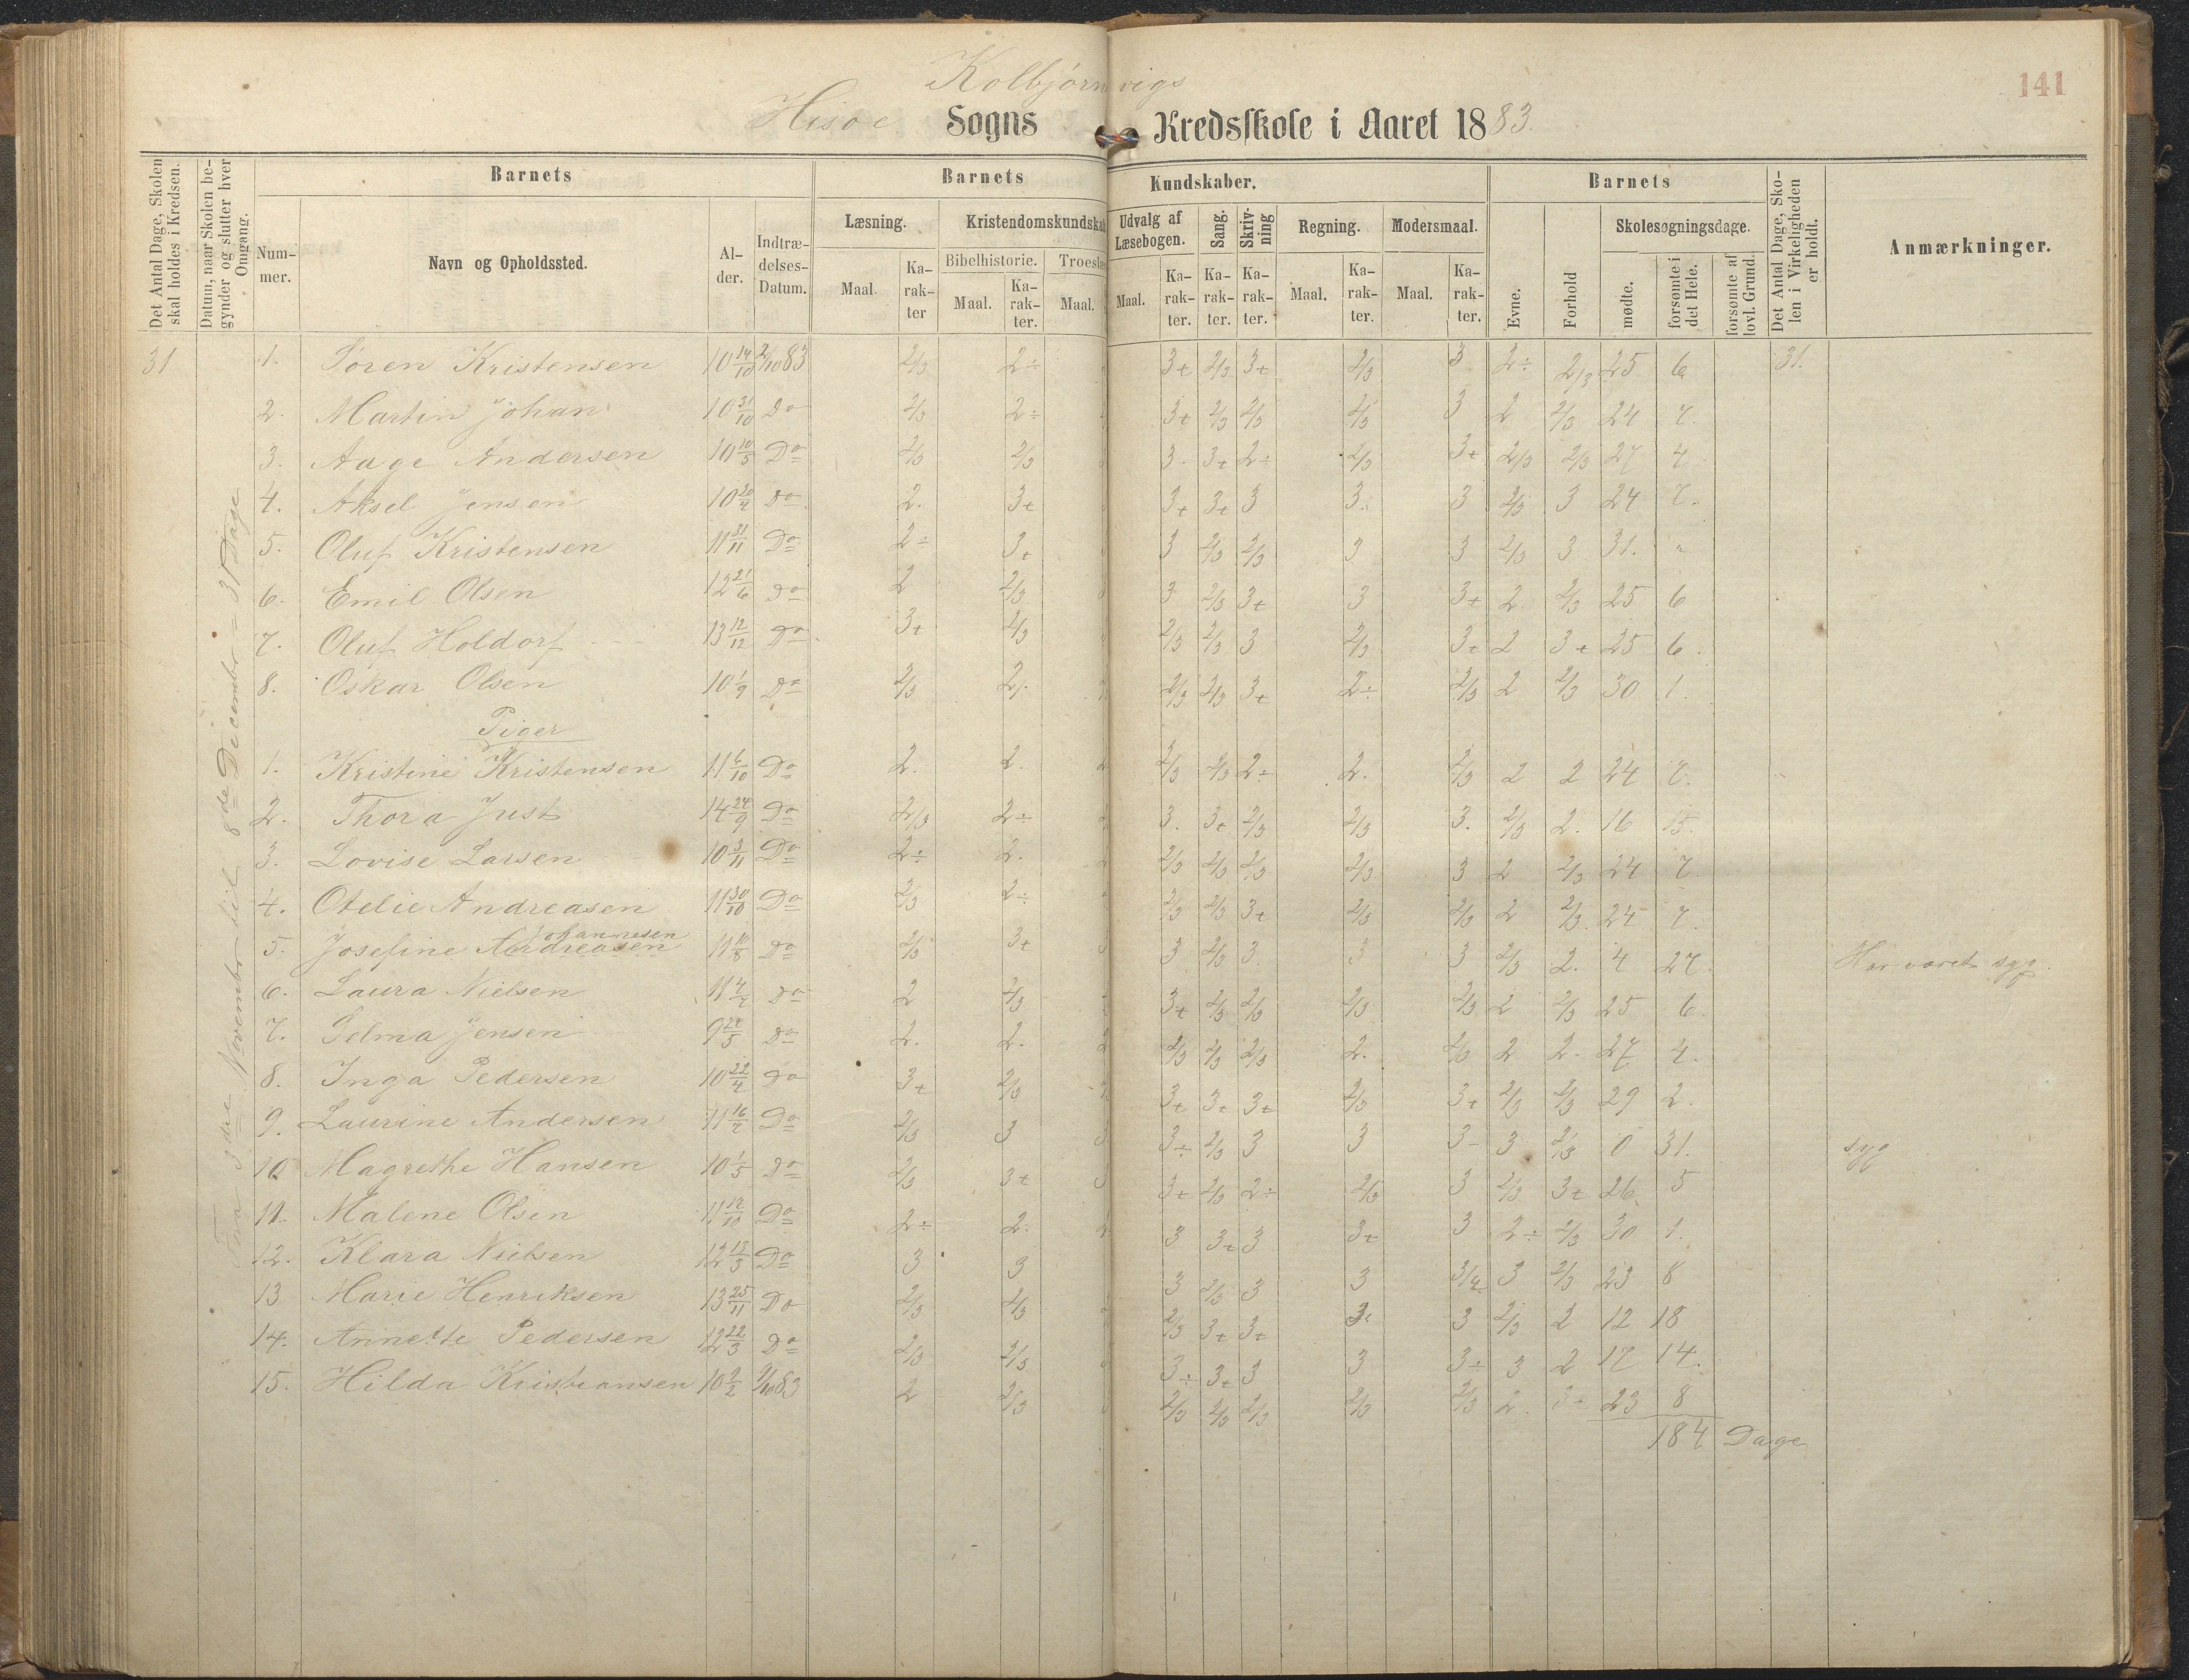 141
Kolbjørnvigs
Hisøe Sogns Kredsskole i Aaret 1883.
Det Antal Dage, Skolen skal holdes i Kredsen.
Datum, naar Skolen begynder og slutter hver Omgang.
Barnets
Nummer.
Navn og Opholdssted.
Alder.
Indtrædelses-Datum.
Barnets Kundskaber.
Læsning.
Maal.
Karakter
Kristendomskundskab
Bibelhistorie.
Maal.
Karakter.
Troeslæ
Maal.
Udvalg af Læsebogen.
Maal.
Karakter.
Sang.
Karakter.
Skrivning
Karakter.
Regning.
Maal.
Karakter.
Modersmaal.
Maal.
Karakter.
Barnets
Evne.
Forhold
Skolesøgningsdage.
mødte.
forsømte i det Hele.
forsømte af lovl. Grund.
Det Antal Dage, Skolen i Virkeligheden er holdt.
Anmærkninger.
Fra 3dre November til 8de December = 31 Dage
31 1. Søren Kristensen 10 14/10 2/10 83 2/3 2÷ 3+ 2/3 3+ 2/3 3 2÷ 2/3 25 6 31.
2. Martin Johan 10 31/10 Do 2/3 2÷ 3+ 2/3 2/3 2/3 3 2 2/3 24 7.
3. Aage Andersen 10 10/5 Do 2/3 2/3 3. 3+ 2÷ 2/3 3+ 2/3 2/3 27 4
4. Aksel Jensen Do 2. 3+ 3+ 3+ 3 3. 3 2/3 3 24 7.
5. Oluf Kristensen 11 31/11 Do 2÷ 3+ 3 2/3 2/3 3 3 2/3 3 31. "
6. Emil Olsen 12 21/6 Do 2 2/3 3 2/3 3+ 3 3+ 2 2/3 25 6
7. Oluf Holdorf 13 12/12 Do 3+ 2/3 2/3 2/3 3 2/3 3+ 2 3+ 25 6.
8. Oskar Olsen 10 1/9 Do 2/3 2/3 2/3 3+ 2÷ 2/3 2 2/3 30 1.
Piger
1. Kristine Kristensen 11 6/10 Do 2. 2. 2/3 2/3 2÷ 2. 2/3 2 2 24 7.
2. Thora Just 14 24/9 Do 2/3 2÷ 3. 3+ 2/3 2/3 3. 2/3 2. 16 15.
3. Lovise Larsen 10 3/11 Do 2÷ 2. 2/3 2/3 2/3 2/3 3 2 2/3 24 7
4. Otelie Andreasen 11 30/10 Do 2/3 2÷ 2/3 2/3 3+ 2/3 2/3 2 2/3 24 7.
Johannesen
5. Josefine Andreasen 11 10/8 Do 2/3 3+ 3 2/3 3. 3 3 2/3 2. 4 27. Har været syg.
6. Laura Nielsen Do 2 2/3 3+ 2/3 2/3 2/3 2/3 2 2/3 25 6.
7. Selma Jensen Do 2. 2. 2/3 2/3 2/3 2. 2/3 2 2. 27 4.
8. Inga Pedersen 10 22/4 Do 3+ 2/3 3+ 3+ 3+ 2/3 3+ 2/3 2/3 29 2.
9. Laurine Andersen Do 2/3 3 3÷ 2/3 3 3 3- 3 2/3 0 31. syg
10 Magrethe Hansen 10 1/5 Do 2/3 3+ 3+ 2/3 2÷ 2/3 3 2/3 3+ 26 5
11. Malene Olsen Do 2÷ 2. 3 3+ 3 3+ 3 2÷ 2/3 30 1.
12. Klara Nielsen 12 13/3 Do 3 3 3 2/3 3 3 3/4 3 2/3 23 8
13 Marie Henriksen 13 25/11 Do 2/3 2/3 2/3 3+ 3+ 3 2/3 2 12 18
14. Annette Pedersen 12 22/3 Do 2/3 2/3 3÷ 3+ 3 3 3÷ 3 2 17 14.
15. Hilda Kristiansen 10 2/2 2 2/3 2/3 2/3 2/3 2/3 2/3 2. 3+ 23 8
184 Dage